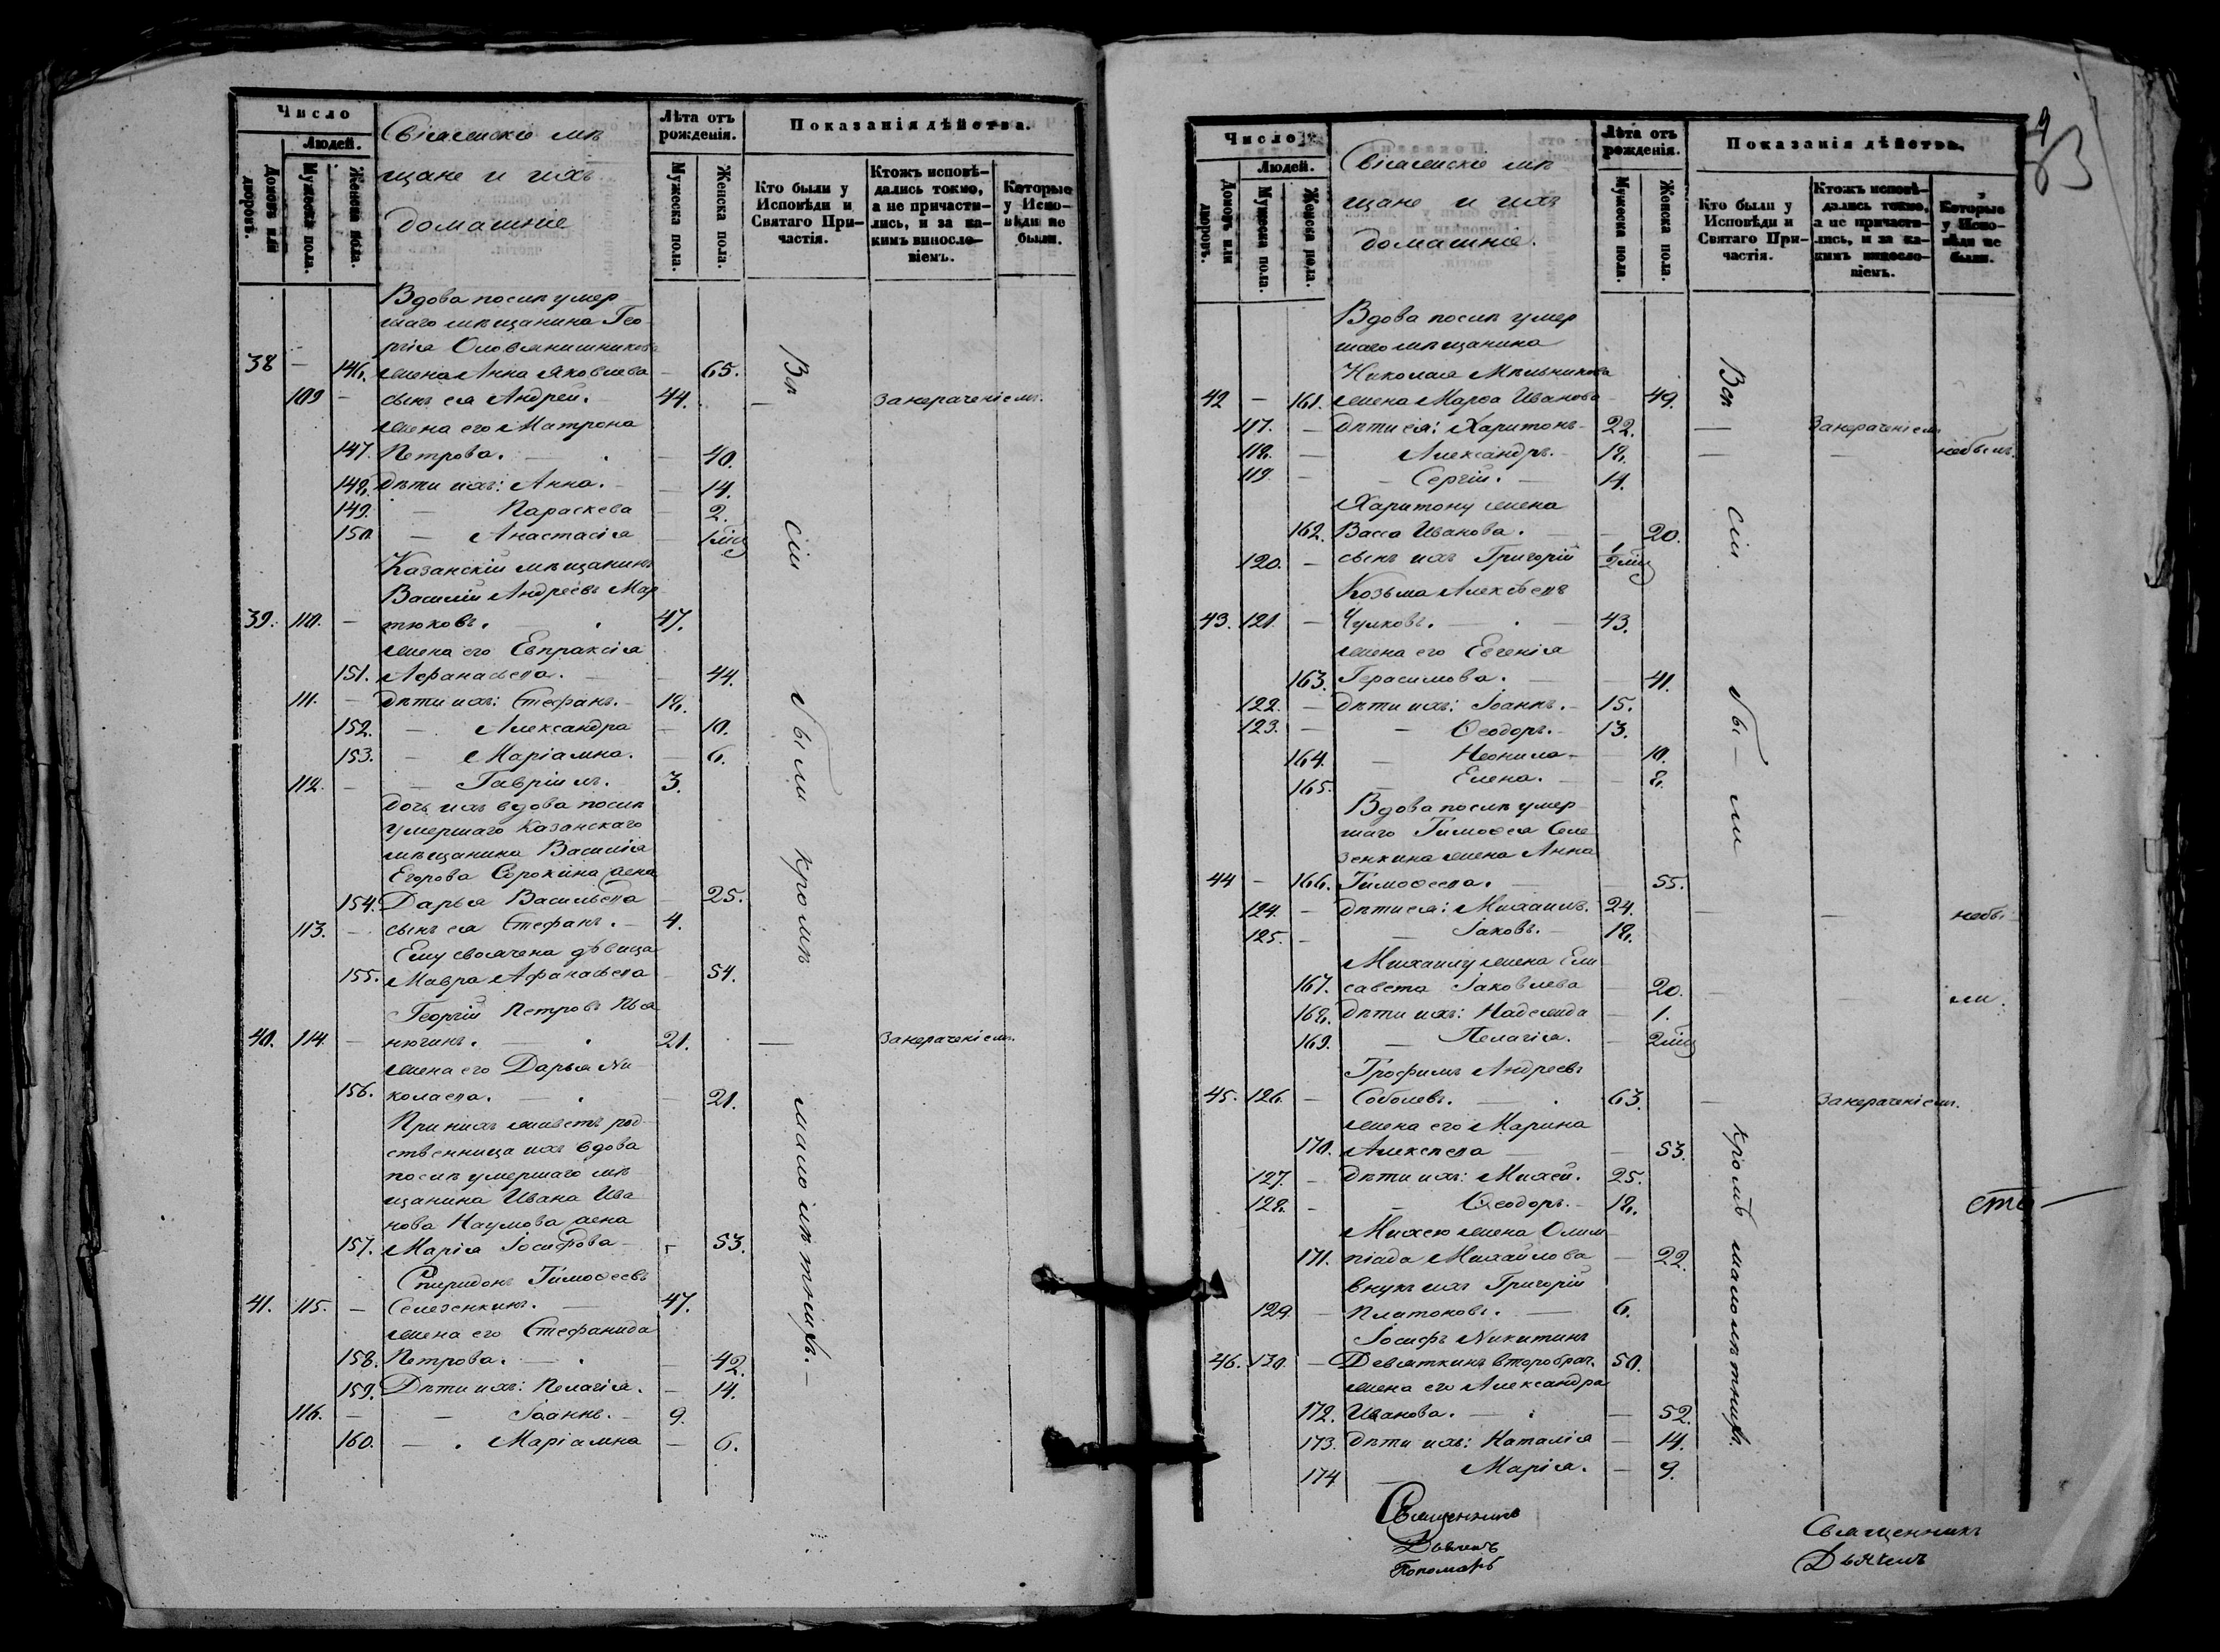 Число
Людей.
Домовъ или дворовъ.
Мужеска пола.
Женска пола.
Свіяжскіе мѣ
щане и ихъ
домашніе
Лѣта отъ рожденія.
Мужеска пола.
Женска пола.
Показанія дѣйства.
Кто были у Исповѣди и Святаго Причастія.
Ктожъ исповѣдались токмо, а не причастились, и за какимъ винословіемъ.
Которые у Исповѣди не были.
Вдова послѣ умер
шаго мѣщанина Гео
ргія Оловянишникова
38 — 146. жена Анна Яковлева — 65.
109 — сынъ ея Андрей. 44. — за нераченіемъ.
жена его Матрона
147. Петрова. — 40.
148. дѣти ихъ: Анна. — 14.
149. — Параскева — 2.
150. — Анастасія —
Казанскій мѣщанинъ
Василій Андреевъ Мар
39. 110. — тюковъ. 47.
жена его Евпраксія
151. Афанасьева. — 44.
111. — дѣти ихъ: Стефанъ. 18.
152. — Александра — 10.
153. — Маріамна. — 6.
112. — — Гавріилъ. 3.
дочь ихъ вдова послѣ
умершаго Казанскаго
мѣщанина Василія
Егорова Сорокина жена
154. Дарья Васильева — 25.
113. — сынъ ея Стефанъ. — 4.
Ему своячена дѣвица
155. Мавра Афанасьева — 54.
Георгій Петровъ Пья
40. 114. — нюгинъ. 21. — за нераченіемъ.
жена его Дарья Ни
156. колаева. — 21.
При нихъ живетъ род
ственница ихъ вдова
послѣ умершаго мѣ
щанина Ивана Ива
нова Наумова жена
157. Марія Іосифова — 53.
Спиридонъ Тимофеевъ
41. 115. — Селезенкинъ. — 47.
жена его Стефанида
158. Петрова. — 42.
159. Дѣти ихъ: Пелагія. — 14.
116. — — Іоаннъ. — 9.
160. — Маріамна — 6.
Всѣ сіи были кромѣ малолѣтнихъ. —
9
Число
Людей.
Домовъ или дворовъ.
Мужеска пола.
Женска пола.
Свіяжскіе мѣ
щане и ихъ
домашніе.
Лѣта отъ рожденія.
Мужеска пола.
Женска пола.
Показанія дѣйства.
Кто были у Исповѣди и Святаго Причастія.
Ктожъ исповѣдались токмо, а не причастились, и за какимъ винословіемъ.
Которые у Исповѣди не были.
Вдова послѣ умер
шаго мѣщанина
Николая Мѣльникова
42 — 161. жена Марѳа Иванова 49.
117. — дѣти ея: Харитонъ 22. — за нераченіемъ
118. — Александръ. 18. — — небылъ.
119 — — Сергій. — 14.
Харитону жена
162. Васса Иванова. — 20.
120. — сынъ ихъ Григорій
Козьма Алексѣевъ
43. 121 — Чулковъ. — 43.
жена его Евгенія
163. Герасимова. — 41.
122. — дѣти ихъ: Іоаннъ. — 15.
123. — — Ѳеодоръ. — 13.
164. — Неонила — 10.
165. — Елена. — 8.
Вдова послѣ умер
шаго Тимоѳея Селе
зенкина жена Анна
44 — 166. Тимоѳеева. 55.
124. — дѣти ея: Михаилъ. 24. — — небы
125. — — Іаковъ. — 18.
Михаилу жена Ели
167. савета Іаковлева — 20. — — ли.
168. дѣти ихъ: Надежда — 1.
169. — Пелагія. —
Трофимъ Андреевъ
45. 126. — Соболевъ. — 63. — за нераченіемъ.
жена его Марина
170. Алексѣева — 53.
127. — дѣти ихъ: Михей. 25.
128. — — Ѳеодоръ. — 18.
Михею жена Олим
171. піада Михайлова — 22.
внукъ ихъ Григорій
129. — Платоновъ. — 6.
Іосифъ Никитинъ
46. 130. — Девяткинъ второбрач. 50.
жена его Александра
172. Иванова. — 52.
173. дѣти ихъ: Наталія — 14.
174 — Марія. — 9.
Всѣ сіи бы — ли кромѣ малолѣтнихъ.
Священникъ
Дьячекъ
Пономарь
Священникъ